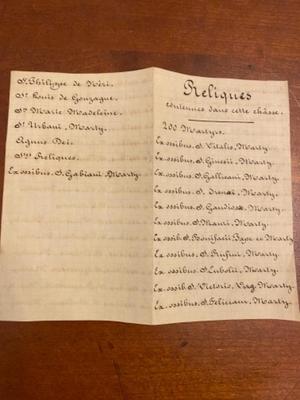 St Philippe de Néri.
St Louis de Gonzague.
Ste Marie Madeleine.
St Urbani, Marty.
Agnus Dei.
Reliques.
Ex ossibus. S. Gabiani Marty.
Reliques
contenues dans cette châsse.
200 Martyrs.
Ex ossibus. S. Vitalis, Marty.
Ex ossibus. S. Ginesii, Marty.
Ex ossibus. S. Gallicani, Marty.
Ex ossibus. S. Marty.
Ex ossibus. S. Gaudiosæ, Marty.
Ex ossibus. S. Mauri, Marty.
Ex ossib. S. Bonifacii, et Marty.
Ex ossibus. S. Rufini, Marty.
Ex ossibus. S. Marty.
Ex ossib. S. Victoris, Marty.
Ex ossibus. S. Feliciani, Marty.